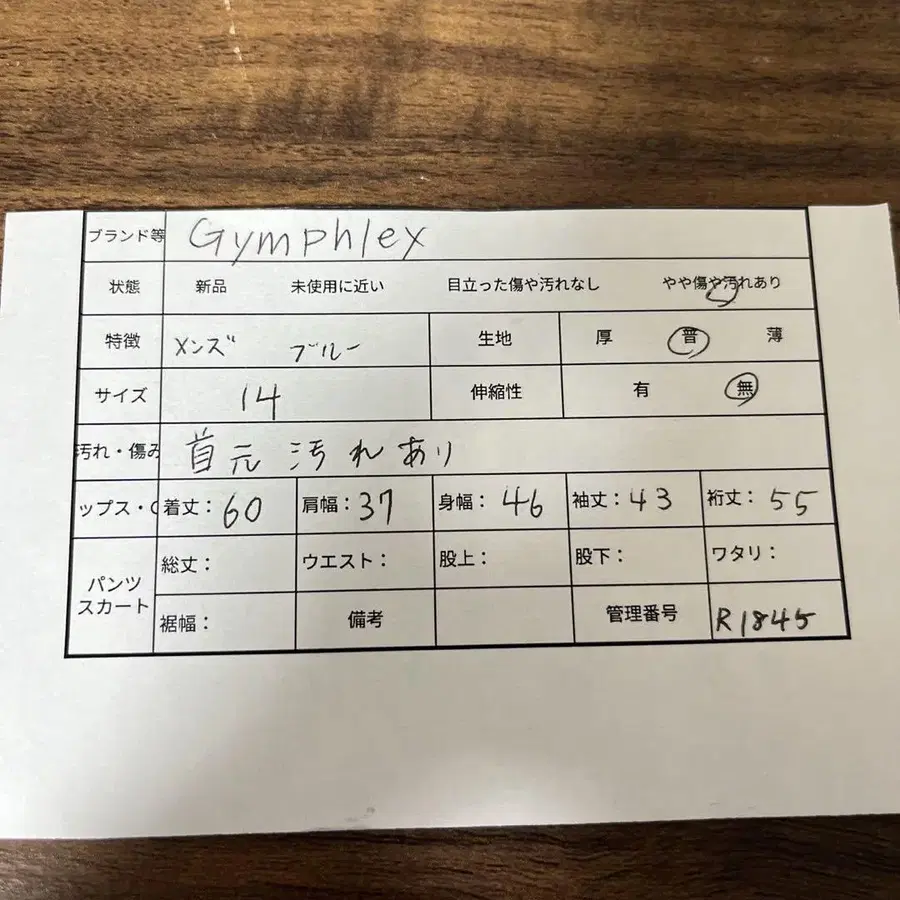 ブランド等 Gymphlex
状態 新品 未使用に近い 目立った傷や汚れなし やや傷や汚れあり
特徴 メンズ ブルー 生地 厚 普 薄
サイズ 14 伸縮性 有 無
汚れ・傷み 首元汚れあり
ップス・ 着丈：60 肩幅：37 身幅：46 袖丈：43 裄丈：55
パンツ
スカート
総丈： ウエスト： 股上： 股下： ワタリ：
裾幅： 備考 管理番号 R1845